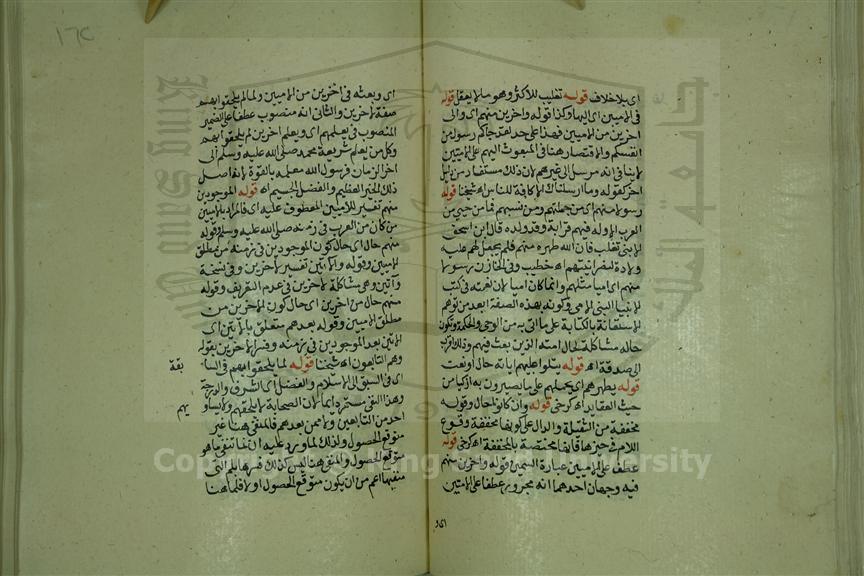 ١٦٢
اى بلا خلاف قوله تغليب للأكثر وهو ما لا يعقل قوله
فى الاميين اى اليها وكذا قوله واخرين منهم اى والى
اخرين من الاميين فهذا على حد لقد جاءكم رسول من
انفسكم والاقتصار هنا فى المبعوث اليهم على الاميين
لا ينافى انه مرسل الى غيرهم لان ذلك مستفاد من دليل
اخر كقوله وما ارسلناك الا كافة للناس اه شيخنا قوله
رسولا منهم اى من جملتهم ومن نسبهم فما من حى من
العرب الا وله فيهم قرابة وقد ولده قال ابن اسحق
الا بنى تغلب فان الله طهره منهم فلم يجعل لهم عليه
ولادة لنصرانيتهم اه خطيب وفى الخازن رسولا
منهم اى اميا مثلهم وانما كان اميا لان نعته فى كتب
الانبيا النبى الامى وكونه بهذه الصفة ابعد من توهم
الاستعانة بالكتابة على ما اتى به من الوحى والحكمة وتكون
حاله مشاكلة لحال امته الذين بعث فيهم وذلك اقرب
الى صدقه اه قوله يتلوا عليهم اياته حال او نعت
قوله يطهرهم اى يحملهم على ما يصيرون به ازكيا من
حيث العقايد اه كرخى قوله وان كانوا حال وقوله
مخففة من الثقيلة والدال على كونها مخففة وقوع
اللام فى حيزها فانها مختصة بالمخففة اه كرخى قوله
عطف على الاميين عبارة السمين قوله واخرين منهم
فيه وجهان احدهما انه مجرور عطفا على الاميين
اى و
اى وبعثه فى اخرين من الاميين ولما لم يلحقوا بهم
صفة لاخرين والثانى انه منصوب عطفا على الضمير
المنصوب فى يعلمهم اى ويعلم اخرين لم يلحقوا بهم
وكل من يعلم شريعة محمد صلى الله عليه وسلم الى
اخر الزمان فرسول الله معلمه بالقوة لانه اصل
ذلك الخير العظيم والفضل الجسيم اه قوله الموجودين
منهم تفسير للاميين المعطوف عليه اى فالمراد بالاميين
من كان من العرب فى زمنه صلى الله عليه وسلم وقوله
منهم حال اى حال كون الموجودين فى زمنه من مطلق
الاميين وقوله والاتين تفسير لاخرين وفى نسخة
وآتين وهى مشاكلة لاخرين فى عدم التعريف وقوله
منهم حال من اخرين اى حال كون الاخرين من
مطلق الاميين وقوله بعدهم متعلق بالاتين اى
الاتين بعد الموجودين فى زمنه وفسر الاخرين بقوله
وهم التابعون اه شيخنا قوله لما يلحقوا بهم فى السا
بقة
اى فى السبق الى الاسلام والفضل اى الشرف والدرجة
وهذا النفى مستمر دايما لان الصحابة لا يلحقهم ولا يساو
يهم
احد من التابعين ولا ممن بعدهم فالمنفى هنا غير
متوقع الحصول ولذلك لما ورد عليه ان لما تنفى ما هو
متوقع الحصول والمنفى هنا ليس كذلك فسرها بلم التى
منفيها اعم من ان يكون متوقع الحصول او لا فلما هنا
Copyright © King Saud University